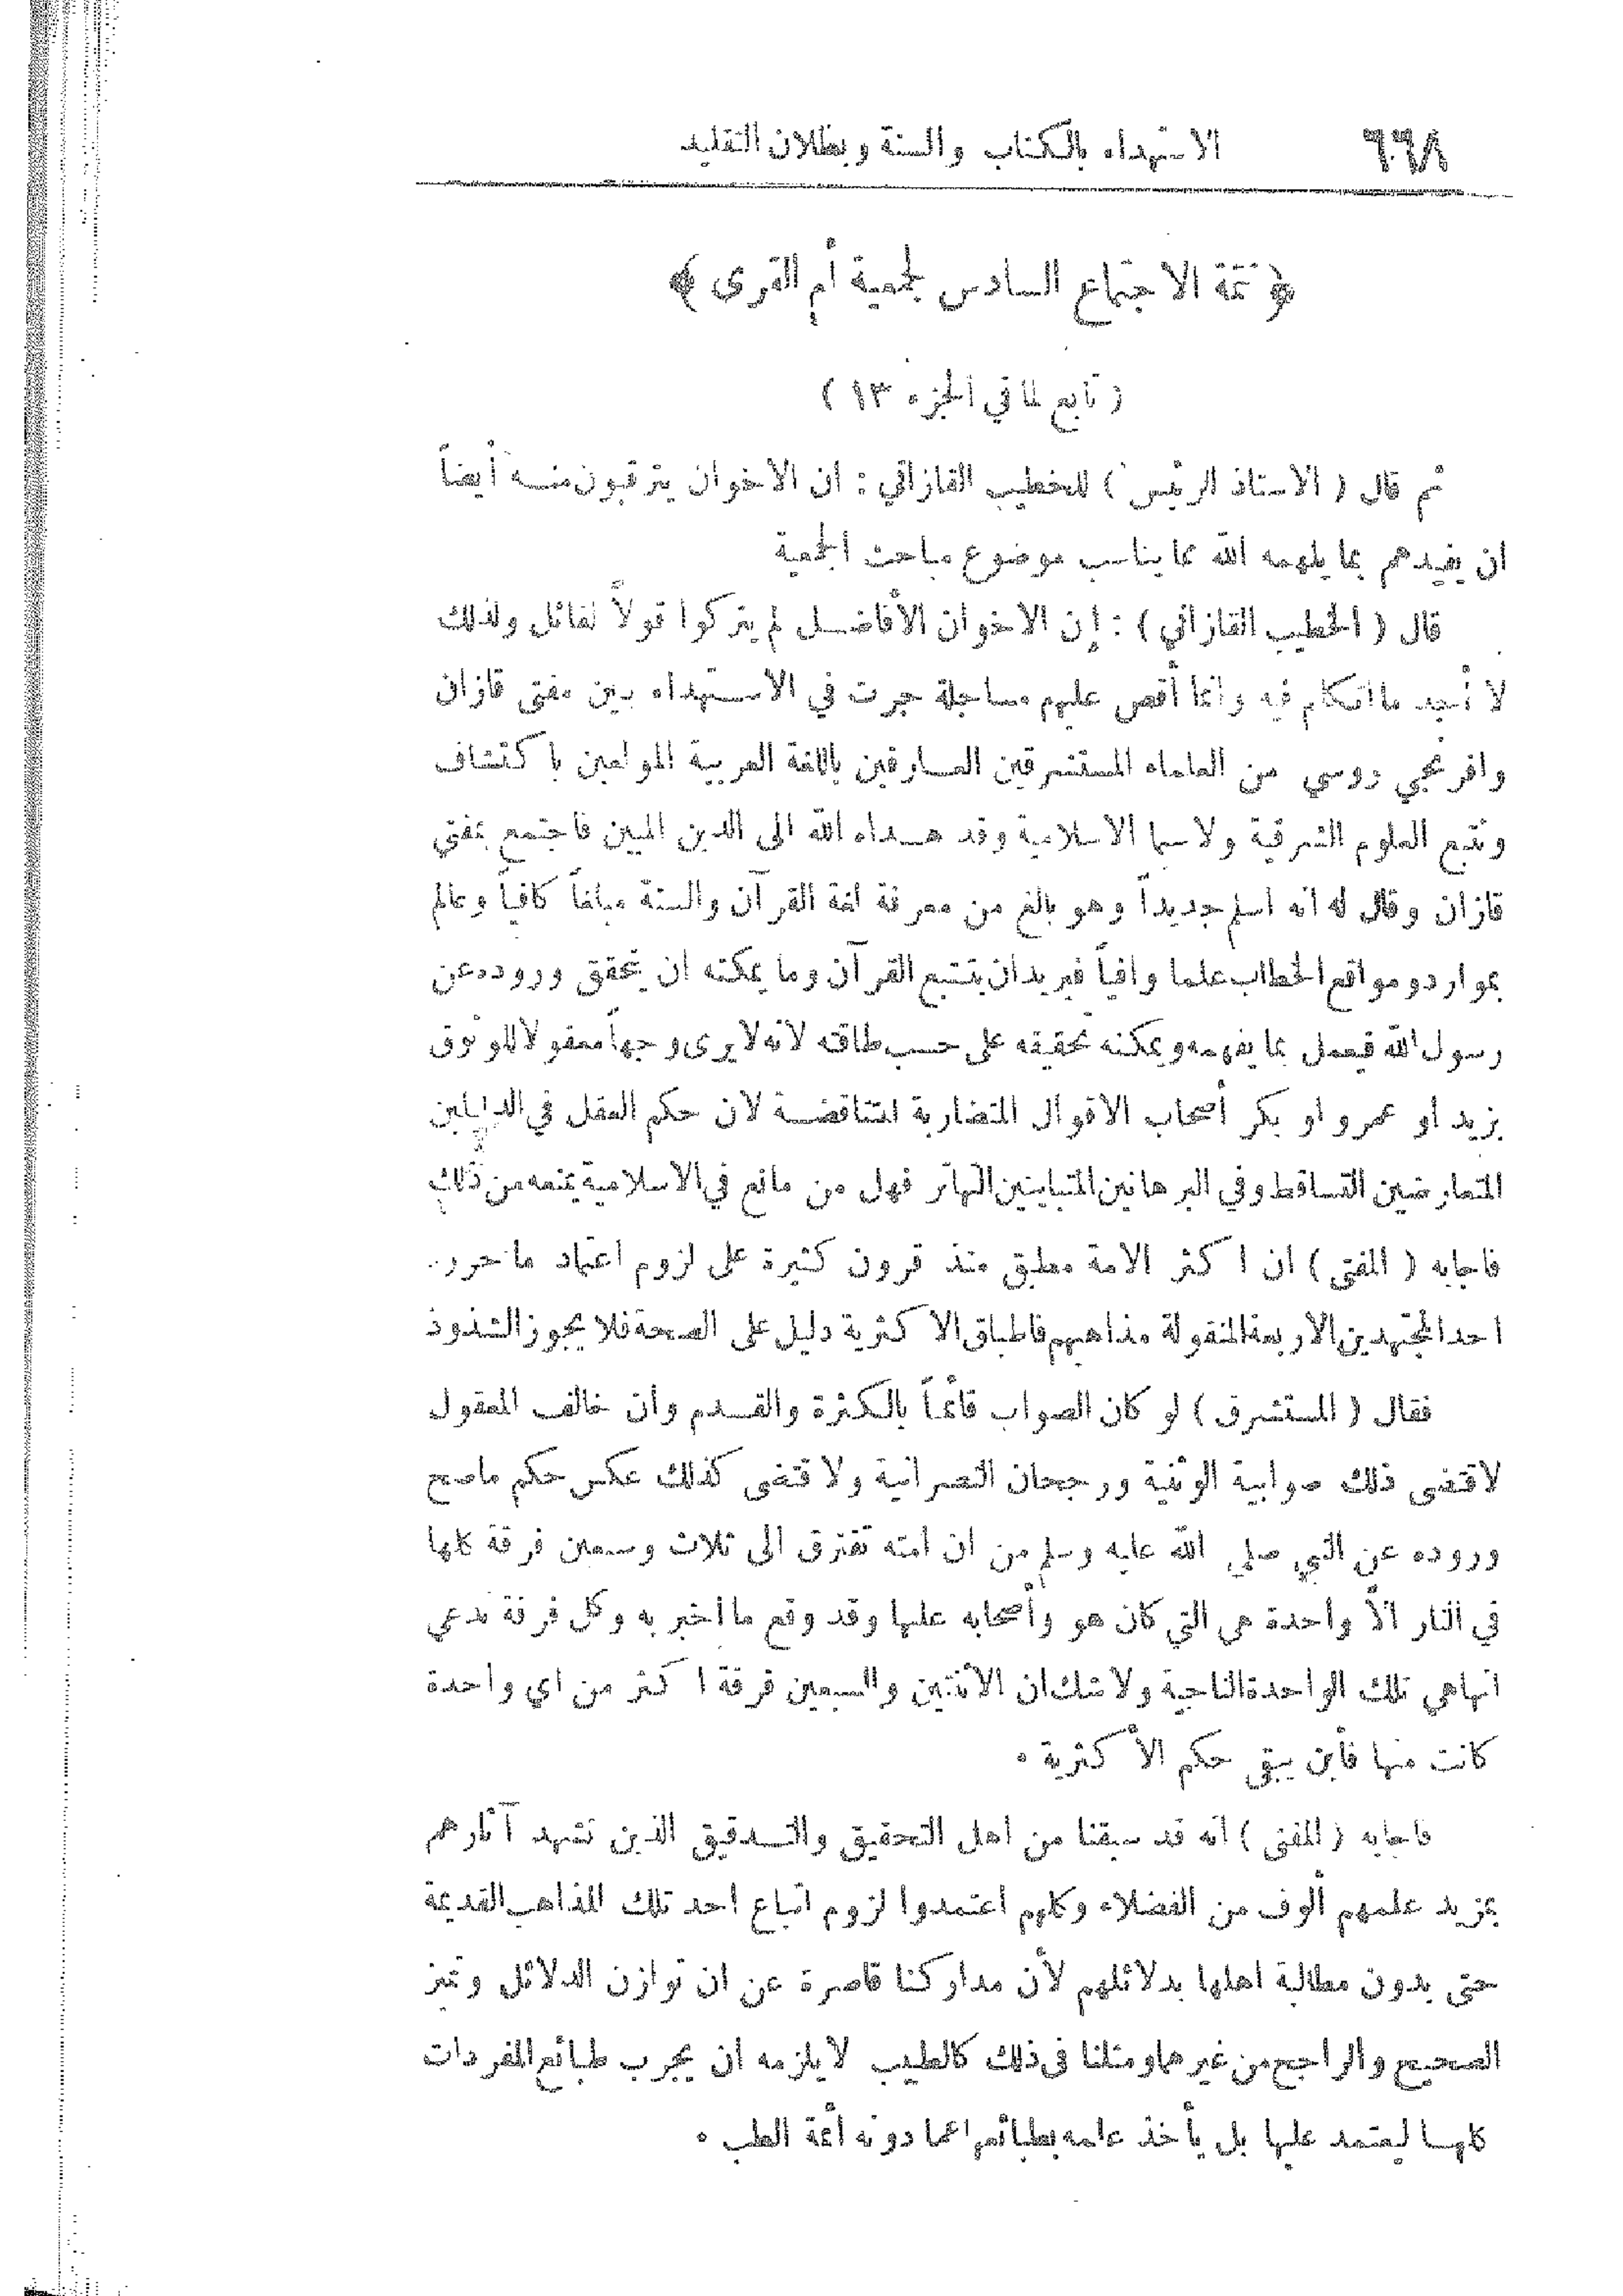 ٦٦٨ الاستهداء بالكتاب والسنة وبطلان التقليد
﴿ تتمة الاجتماع السادس لجمعية أم القرى ﴾
( تابع لما في الجزء ١٣ )
ثم قال ( الاستاذ الرئيس ) للخطيب القازاني : ان الاخوان يترقبون منه أيضاً
ان يفيدهم بما يلهمه الله مما يناسب موضوع مباحث الجمعية
قال ( الخطيب القازاني ) : إن الاخوان الأفاضل لم يتركوا قولاً لقائل ولذلك
لا أجد ما اتكلم فيه وانما أقص عليهم مساجلة جرت في الاستهداء بين مفتي قازان
وافرنجي روسي من العلماء المستشرقين العارفين باللغة العربية المولعين باكتشاف
وتتبع العلوم الشرقية ولا سيما الاسلامية وقد هداه الله الى الدين المبين فاجتمع بمفتي
قازان وقال له انه اسلم جديداً وهو بالغ من معرفة لغة القرآن والسنة مبلغاً كافياً وعالم
بموارد ومواقع الخطاب علما وافياً فيريد ان يتتبع القرآن وما يمكنه ان يتحقق وروده عن
رسول الله فيعمل بما يفهمه ويمكنه تحقيقه على حسب طاقته لانه لا يرى وجهاً معقولا للوثوق
بزيد أو عمرو او بكر أصحاب الاقوال المتضاربة المتناقضة لان حكم العقل في الدليلين
المتعارضين التساقط وفي البرهانين المتباينين التهاتر فهل من مانع في الاسلامية يمنعه من ذلك
فاجابه ( المفتي ) ان اكثر الامة مطبق منذ قرون كثيرة على لزوم اعتماد ما حرره
احد المجتهدين الاربعة المنقولة مذاهبهم فاطباق الاكثرية دليل على الصحة فلا يجوز الشذوذ
فقال ( المستشرق ) لو كان الصواب قائماً بالكثرة والقدم وان خالف المعقول
لاقتضى ذلك صوابية الوثنية ورجحان النصرانية ولاقتضى كذلك عكس حكم ما صح
وروده عن النبي صلى الله عليه وسلم من ان امته تفترق الى ثلاث وسبعين فرقة كلها
في النار الاّ واحدة هي التي كان هو وأصحابه عليها وقد وقع ما اخبر به وكل فرقة تدعي
انها هي تلك الواحدة الناجية ولا شك ان الاثنتين والسبعين فرقة اكثر من اي واحدة
كانت منها فأين يبقى حكم الأكثرية .
فاجابه ( المفتي ) انه قد سبقنا من اهل التحقيق والتدقيق الذين تشهد آثارهم
بمزيد علمهم ألوف من الفضلاء وكلهم اعتمدوا لزوم اتباع احد تلك المذاهب القديمة
حتى بدون مطالبة اهلها بدلائلهم لأن مداركنا قاصرة عن ان توازن الدلائل وتميز
الصحيح والراجح من غيرهما ومثلنا فى ذلك كالطبيب لا يلزمه ان يجرب طبائع المفردات
كلها ليعتمد عليها بل يأخذ علمه بطبائعها مما دونه ائمة الطب .